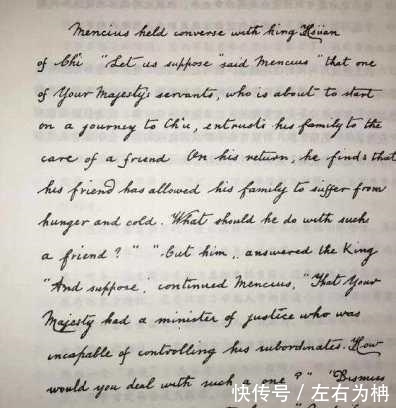 Mencius held converse with King Hsüan
of Chi "Let us suppose" said Mencius "that one
of Your Majesty's servants, who is about to start
on a journey to Ch'u, entrusts his family to the
care of a friend On his return, he finds that
his friend has allowed his family to suffer from
hunger and cold. What should he do with such
a friend?" "Cut him, answered the King
"And suppose", continued Mencius, "That Your
Majesty had a minister of justice who was
incapable of controlling his subordinates. How
would you deal with such a one?" "Dismiss
快传号/左右为柟